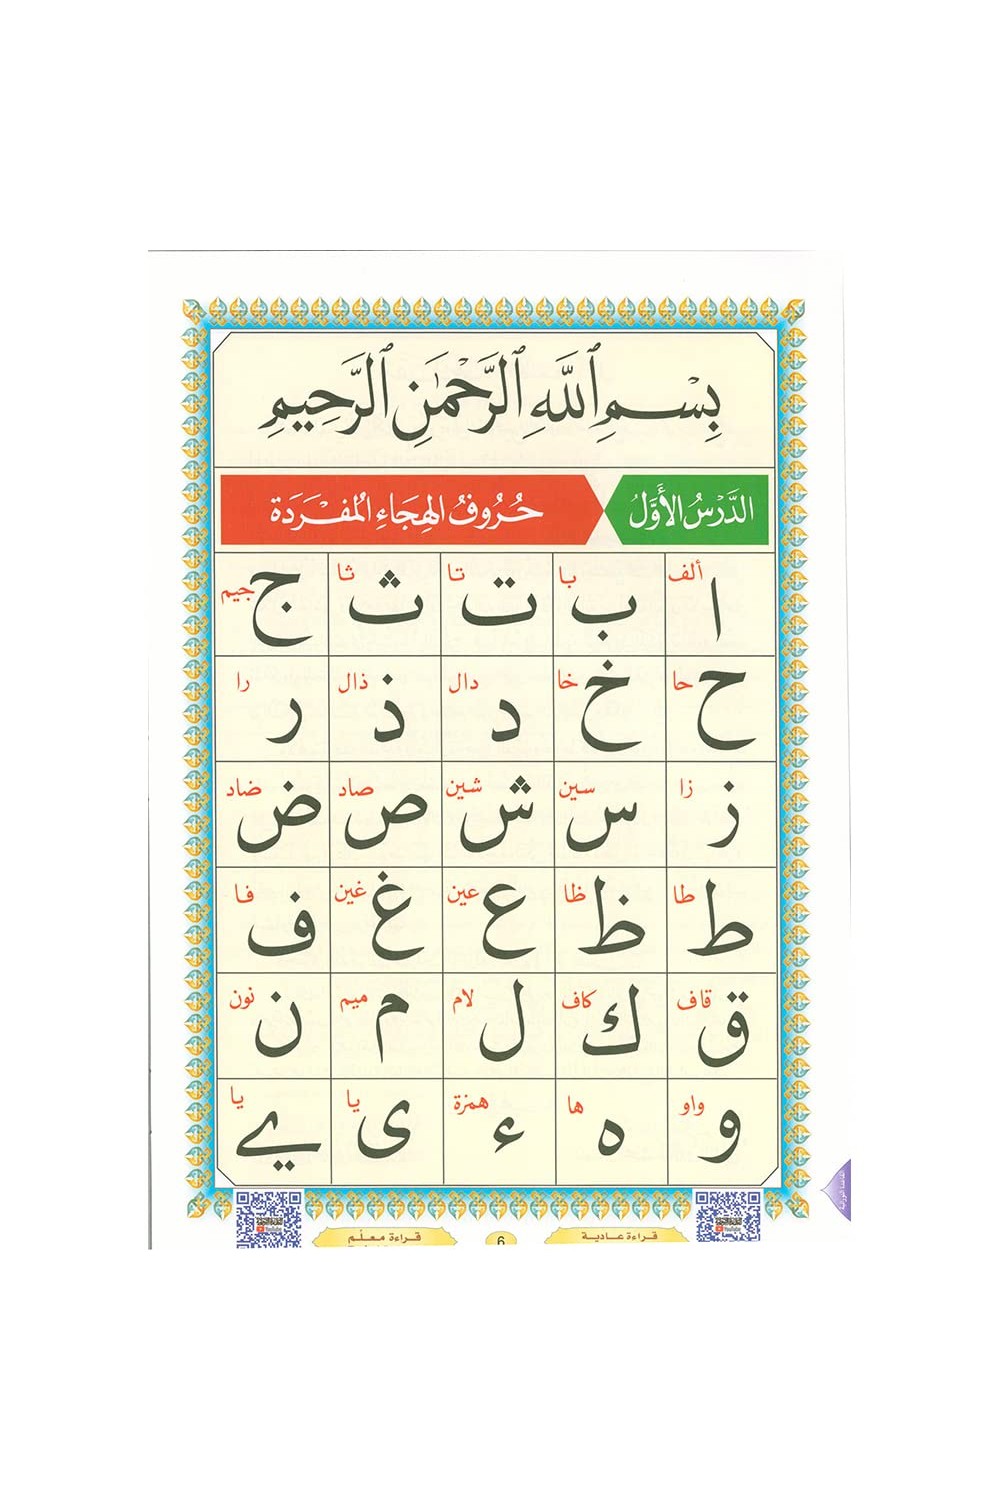 بِسْمِ ٱللَّهِ ٱلرَّحْمَٰنِ ٱلرَّحِيمِ
الدَّرْسُ الأَوَّلُ حُرُوفُ الهِجَاءِ المُفْرَدَة
ألف با تا ثا جيم
ا ب ت ث ج
حا خا دال ذال را
ح خ د ذ ر
زا سين شين صاد ضاد
ز س ش ص ض
طا ظا عين غين فا
ط ظ ع غ ف
قاف كاف لام ميم نون
ق ك ل م ن
واو ها همزة يا يا
و ه ء ى ے
قراءة عادية 6 قراءة معلّم